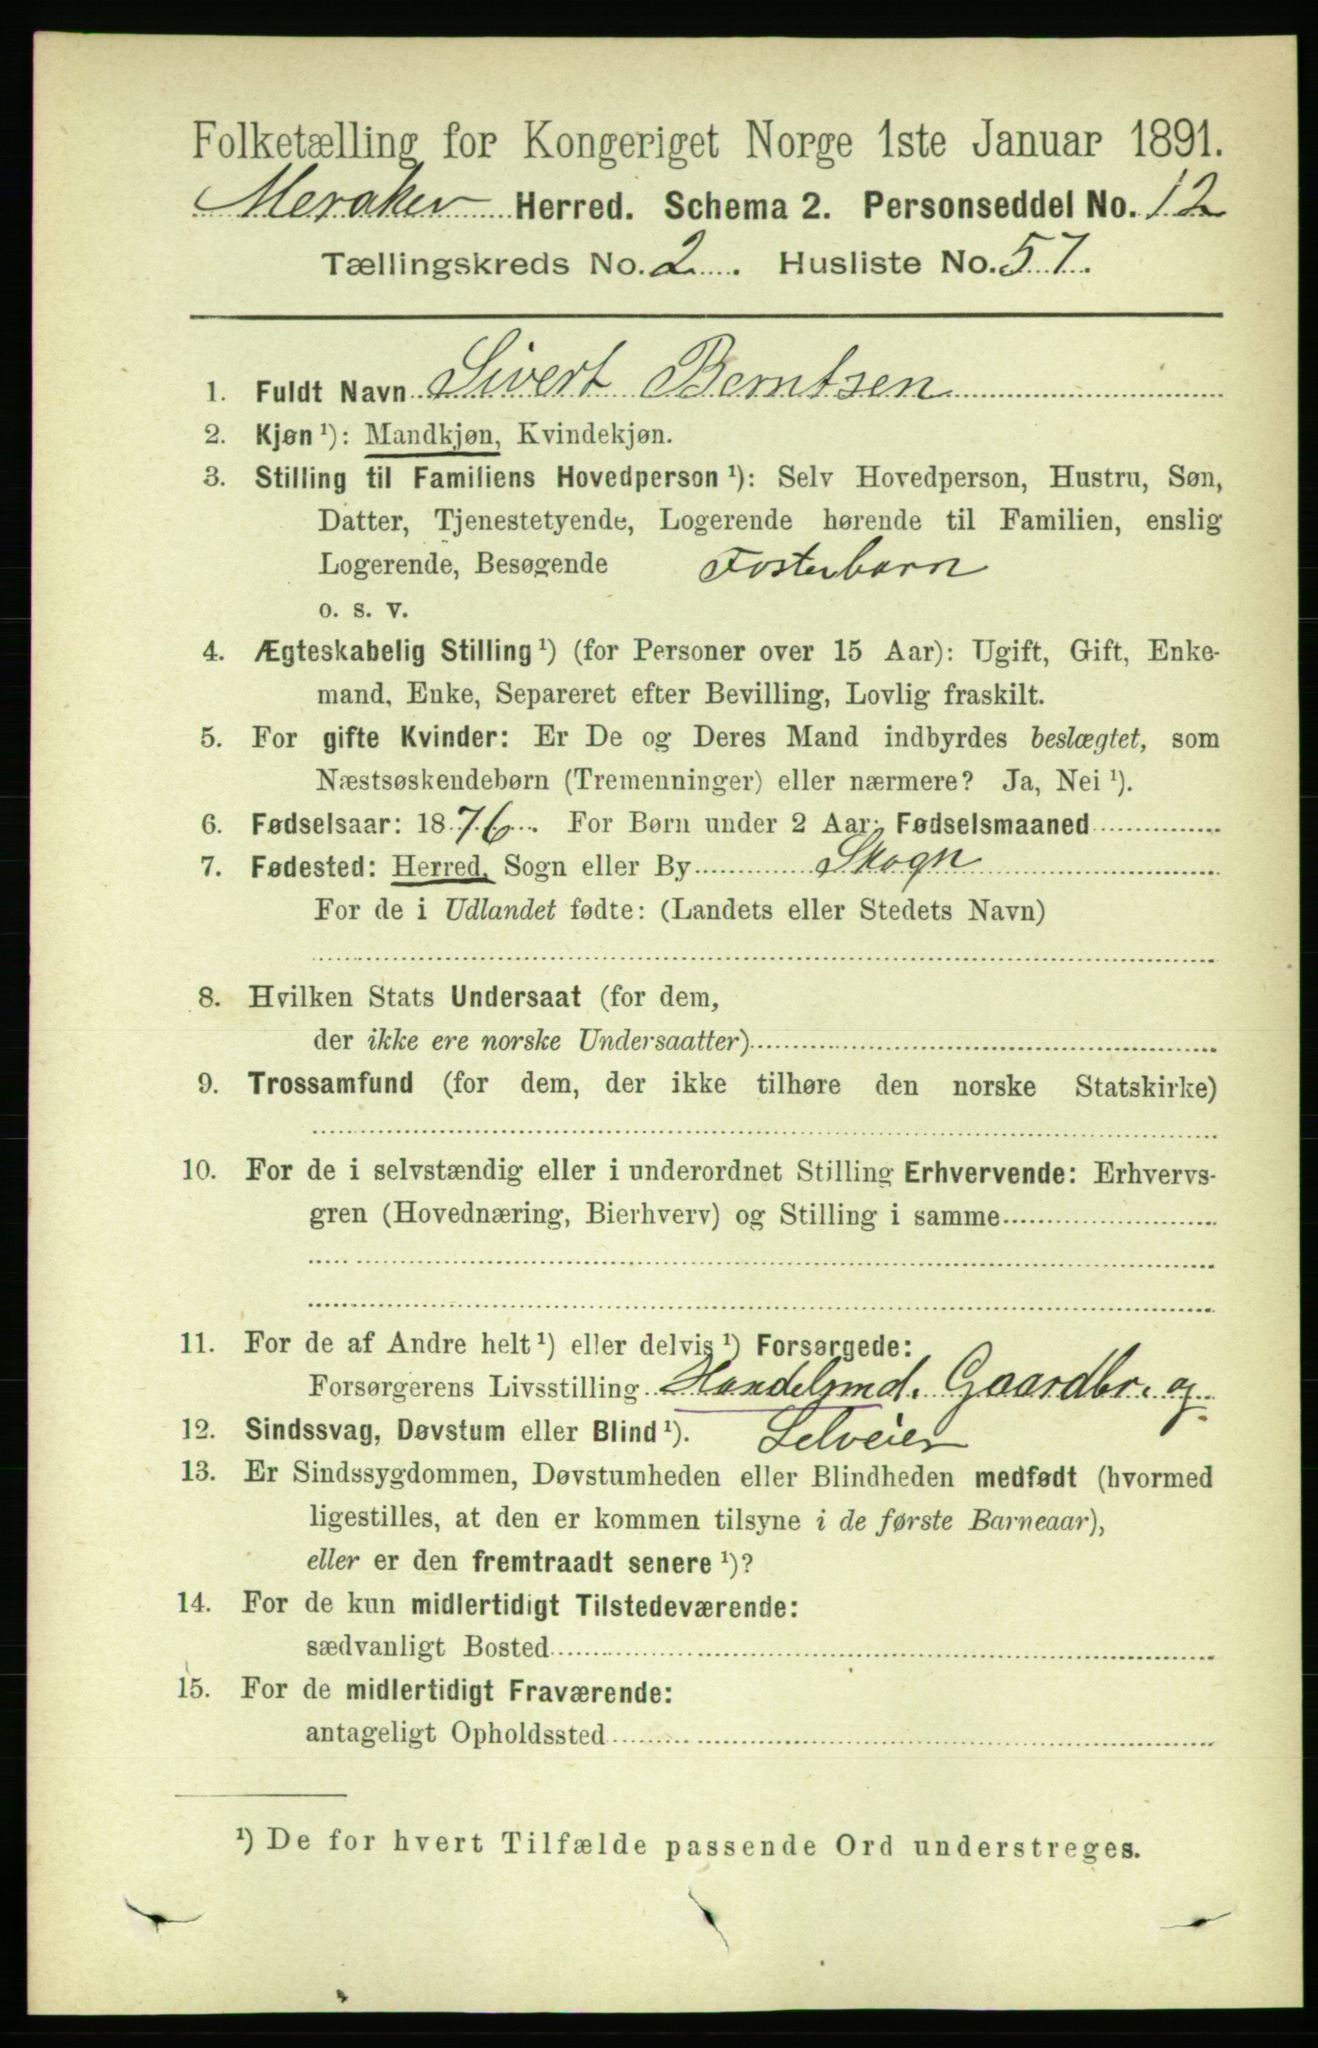 Folketælling for Kongeriget Norge 1ste Januar 1891.
Meraker Herred. Schema 2. Personseddel No. 12
Tællingskreds No. 2. Husliste No. 57.
1. Fuldt Navn Sivert Berntsen
2. Kjøn ¹): Mandkjøn, Kvindekjøn.
3. Stilling til Familiens Hovedperson ¹): Selv Hovedperson, Hustru, Søn,
Datter, Tjenestetyende, Logerende hørende til Familien, enslig
Logerende, Besøgende Fosterbarn
o. s. v.
4. Ægteskabelig Stilling ¹) (for Personer over 15 Aar): Ugift, Gift, Enke-
mand, Enke, Separeret efter Bevilling, Lovlig fraskilt.
5. For gifte Kvinder: Er De og Deres Mand indbyrdes beslægtet, som
Næstsøskendebørn (Tremenninger) eller nærmere? Ja, Nei ¹).
6. Fødselsaar: 1876. For Børn under 2 Aar: Fødselsmaaned
7. Fødested: Herred, Sogn eller By Skogn
For de i Udlandet fødte: (Landets eller Stedets Navn)
8. Hvilken Stats Undersaat (for dem,
der ikke ere norske Undersaatter)
9. Trossamfund (for dem, der ikke tilhøre den norske Statskirke)
10. For de i selvstændig eller i underordnet Stilling Erhvervende: Erhvervs-
gren (Hovednæring, Bierhverv) og Stilling i samme
11. For de af Andre helt ¹) eller delvis ¹) Forsørgede:
Forsørgerens Livsstilling Handelsmd. Gaardbr. og
12. Sindssvag, Døvstum eller Blind ¹). Selveier
13. Er Sindssygdommen, Døvstumheden eller Blindheden medfødt (hvormed
ligestilles, at den er kommen tilsyne i de første Barneaar),
eller er den fremtraadt senere ¹)?
14. For de kun midlertidigt Tilstedeværende:
sædvanligt Bosted
15. For de midlertidigt Fraværende:
antageligt Opholdssted
¹) De for hvert Tilfælde passende Ord understreges.